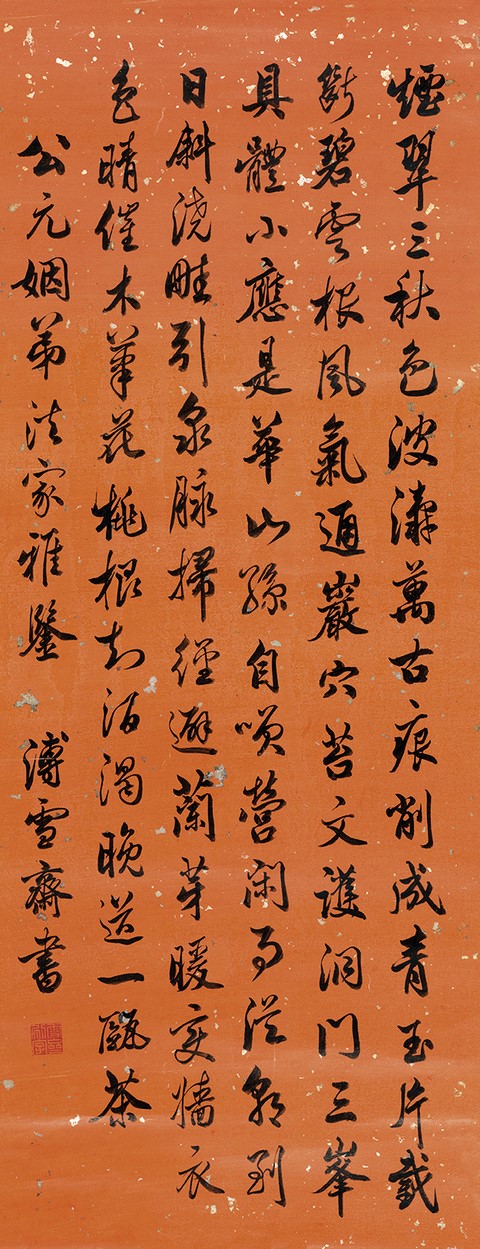 煙翠三秋色波濤萬古痕削成青玉片截
斷碧雲根風氣通巖穴苔文護洞門三峯
具體小應是華山孫自笑營閑事從朝到
日斜澆畦引泉脉掃徑避蘭芽暖變牆衣
色晴催木筆花桃根知酒渴晚送一甌茶
公元姻弟法家雅鑒 溥雪齋書